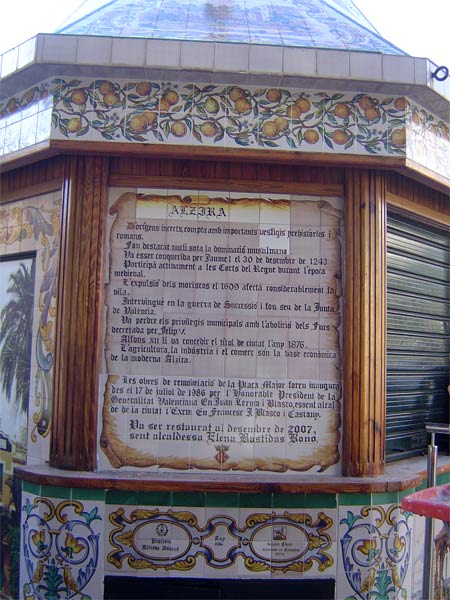 ALZIRA
D'orígens incerts, compta amb importants vestigis prehistòrics i
romans.
Fou destacat nucli sota la dominació musulmana.
Va esser conquerida per Jaume I el 30 de desembre de 1243
Participà activament a les Corts del Regne durant l'època
medieval.
L'expulsió dels moriscos el 1609 afectà considerablement la
vila.
Intervingué en la guerra de Successió i fou seu de la Junta
de Valencia.
Va perdre els privilegis municipals amb l'abolició dels Furs
decretada per Felip V.
Alfons XII li va concedir el títol de ciutat l'any 1876.
L'agricultura, la indústria i el comerç son la base econòmica
de la moderna Alzira.
Les obres de remodelació de la Plaça Major foren inaugura
des el 17 de juliol de 1986 per l'Honorable President de la
Generalitat Valenciana En Juan Lerma i Blasco, essent alcal
de de la ciutat l'Excm. En Francesc J. Blasco i
Va ser restaurat al desembre de 2007,
sent alcaldessa Elena Bastidas Bono.
Alfredo
Any